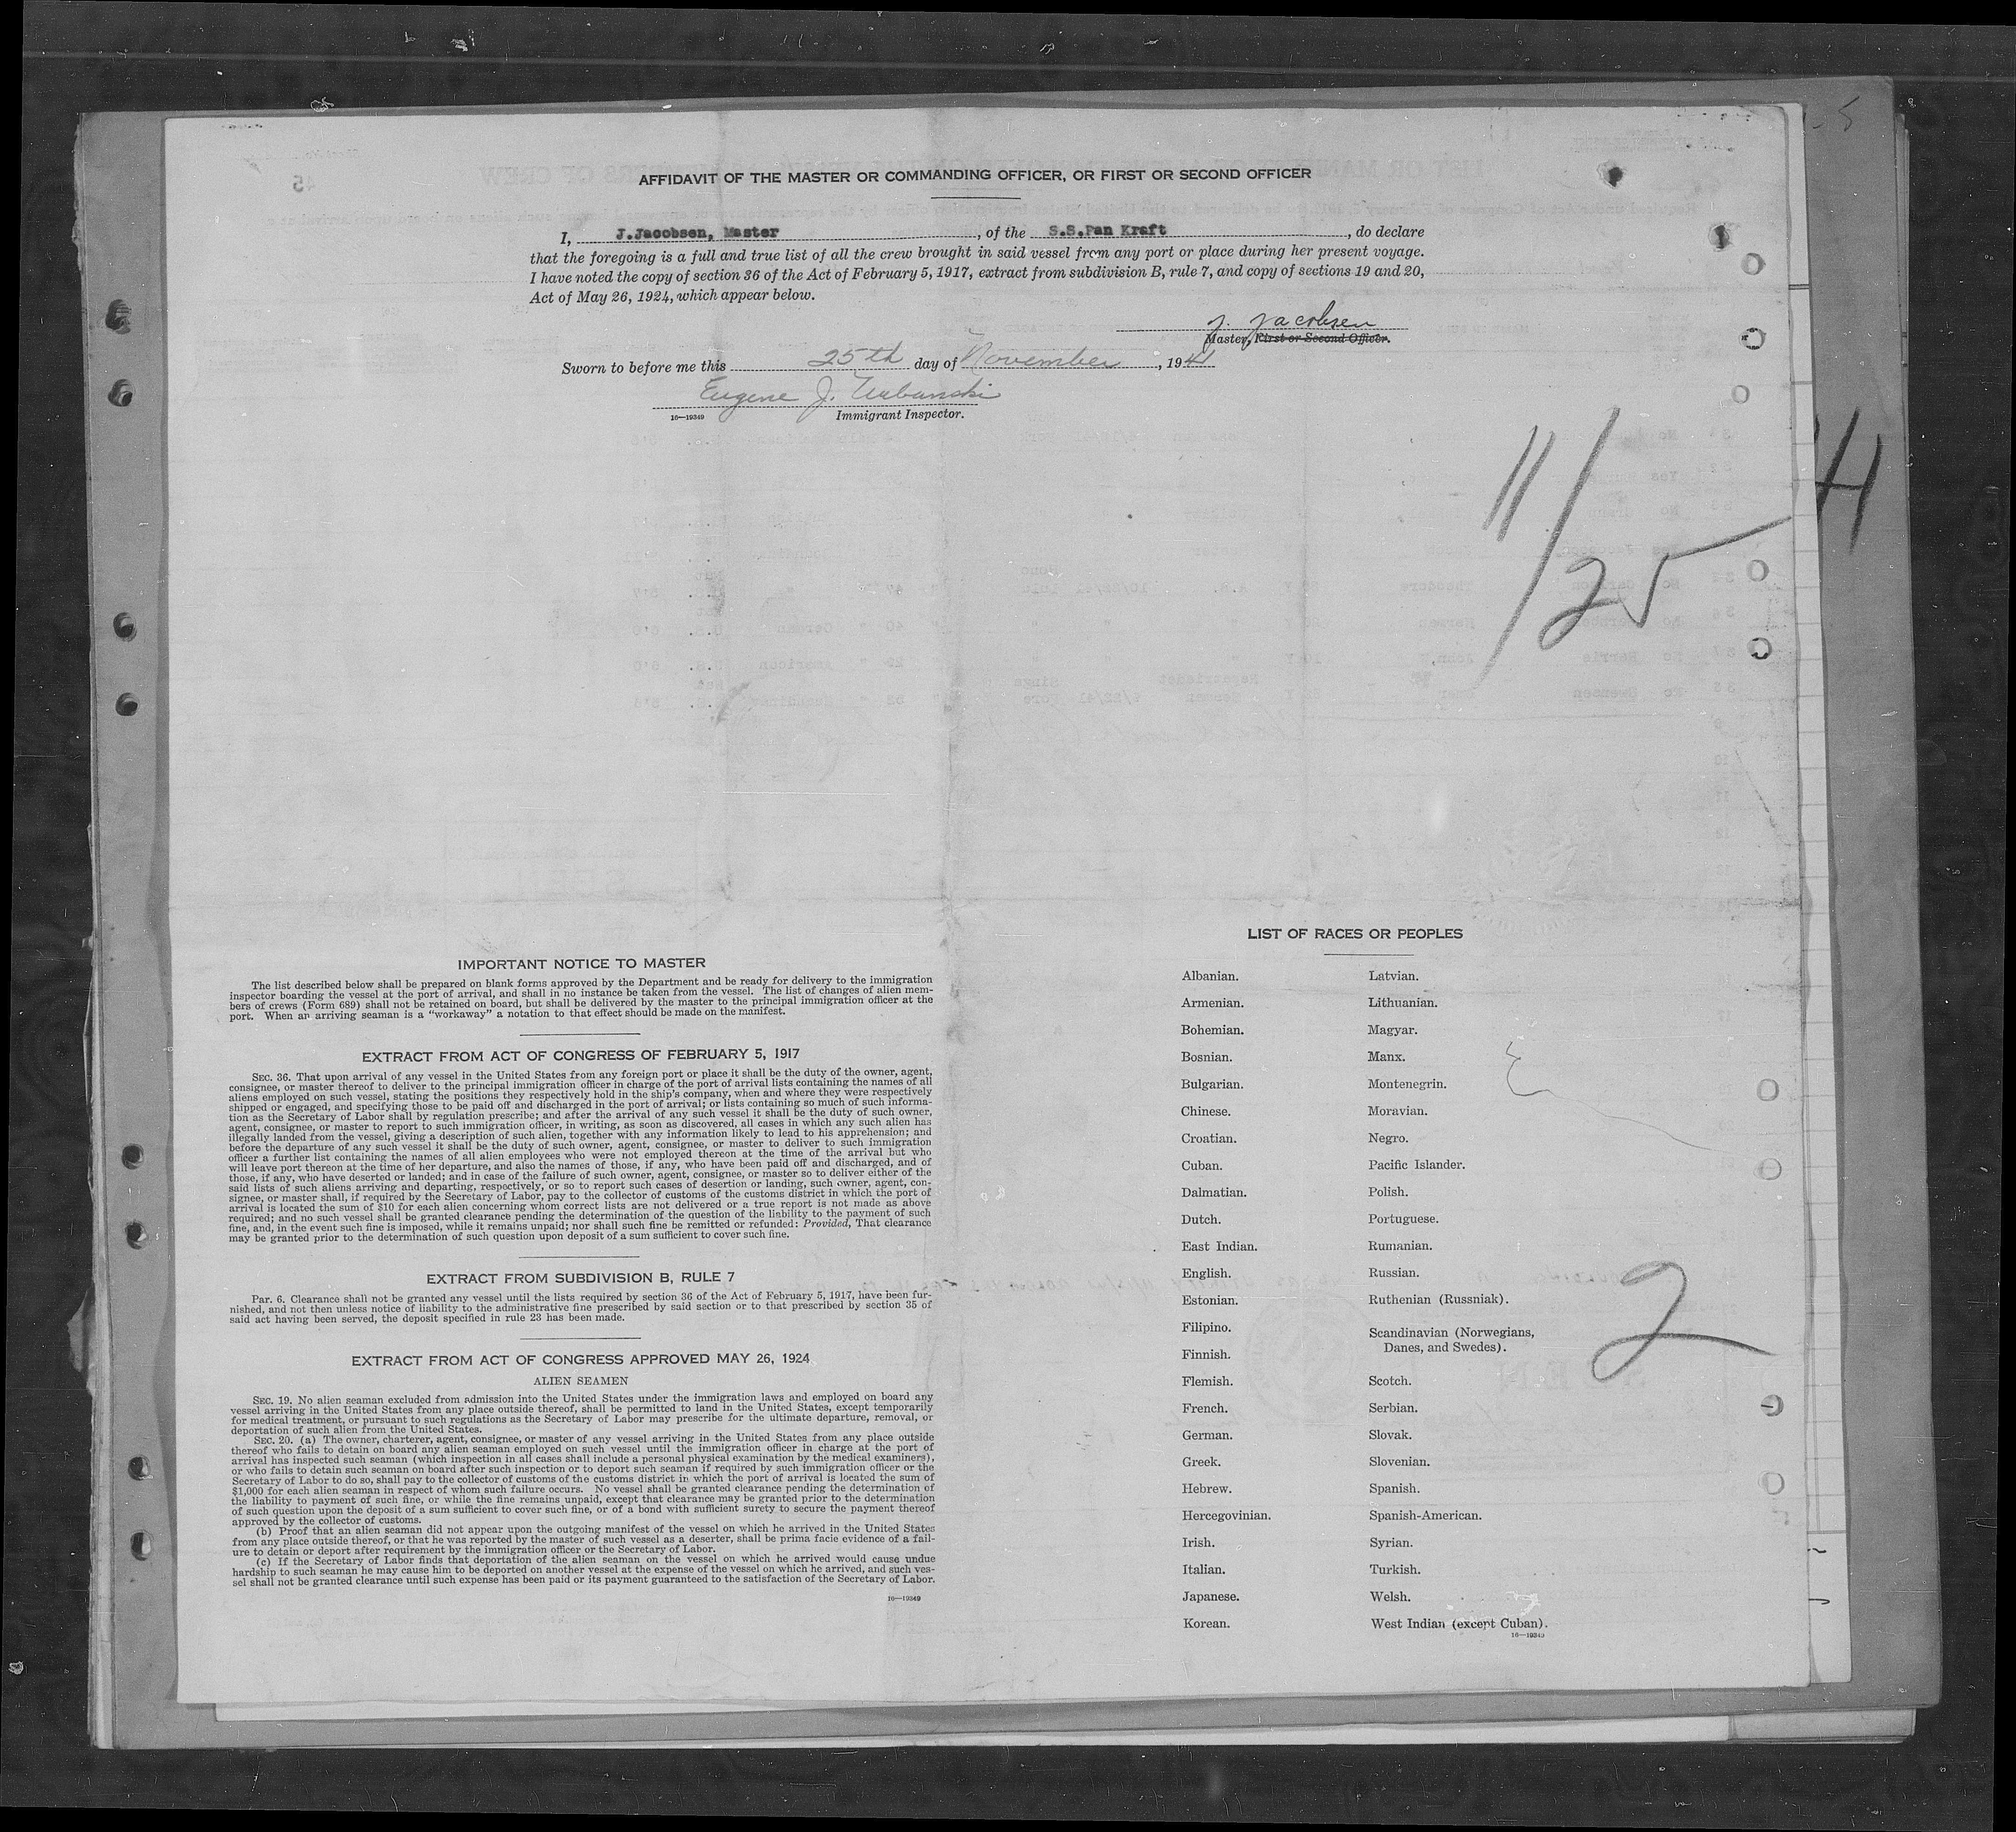 AFFIDAVIT OF THE MASTER OR COMMANDING OFFICER, OR FIRST OR SECOND OFFICER
I, J.Jacobsen, Master, of the S.S.Pan Kraft, do declare
that the foregoing is a full and true list of all the crew brought in said vessel from any port or place during her present voyage.
I have noted the copy of section 36 of the Act of February 5, 1917, extract from subdivision B, rule 7, and copy of sections 19 and 20,
Act of May 26, 1924, which appear below.
J. Jacobsen
Master, First or Second Officer.
Sworn to before me this 25th day of November, 1941
Eugene J.
16—19349 Immigrant Inspector.
11/25
IMPORTANT NOTICE TO MASTER
The list described below shall be prepared on blank forms approved by the Department and be ready for delivery to the immigration
inspector boarding the vessel at the port of arrival, and shall in no instance be taken from the vessel. The list of changes of alien mem-
bers of crews (Form 689) shall not be retained on board, but shall be delivered by the master to the principal immigration officer at the
port. When an arriving seaman is a "workaway" a notation to that effect should be made on the manifest.
EXTRACT FROM ACT OF CONGRESS OF FEBRUARY 5, 1917
SEC. 36. That upon arrival of any vessel in the United States from any foreign port or place it shall be the duty of the owner, agent,
consignee, or master thereof to deliver to the principal immigration officer in charge of the port of arrival lists containing the names of all
aliens employed on such vessel, stating the positions they respectively hold in the ship's company, when and where they were respectively
shipped or engaged, and specifying those to be paid off and discharged in the port of arrival; or lists containing so much of such informa-
tion as the Secretary of Labor shall by regulation prescribe; and after the arrival of any such vessel it shall be the duty of such owner,
agent, consignee, or master to report to such immigration officer, in writing, as soon as discovered, all cases in which any such alien has
illegally landed from the vessel, giving a description of such alien, together with any information likely to lead to his apprehension; and
before the departure of any such vessel it shall be the duty of such owner, agent, consignee, or master to deliver to such immigration
officer a further list containing the names of all alien employees who were not employed thereon at the time of the arrival but who
will leave port thereon at the time of her departure, and also the names of those, if any, who have been paid off and discharged, and of
those, if any, who have deserted or landed; and in case of the failure of such owner, agent, consignee, or master so to deliver either of the
said lists of such aliens arriving and departing, respectively, or so to report such cases of desertion or landing, such owner, agent, con-
signee, or master shall, if required by the Secretary of Labor, pay to the collector of customs of the customs district in which the port of
arrival is located the sum of $10 for each alien concerning whom correct lists are not delivered or a true report is not made as above
required; and no such vessel shall be granted clearance pending the determination of the question of the liability to the payment of such
fine, and, in the event such fine is imposed, while it remains unpaid; nor shall such fine be remitted or refunded: Provided, That clearance
may be granted prior to the determination of such question upon deposit of a sum sufficient to cover such fine.
EXTRACT FROM SUBDIVISION B, RULE 7
Par. 6. Clearance shall not be granted any vessel until the lists required by section 36 of the Act of February 5, 1917, have been fur-
nished, and not then unless notice of liability to the administrative fine prescribed by said section or to that prescribed by section 35 of
said act having been served, the deposit specified in rule 23 has been made.
EXTRACT FROM ACT OF CONGRESS APPROVED MAY 26, 1924
ALIEN SEAMEN
SEC. 19. No alien seaman excluded from admission into the United States under the immigration laws and employed on board any
vessel arriving in the United States from any place outside thereof, shall be permitted to land in the United States, except temporarily
for medical treatment, or pursuant to such regulations as the Secretary of Labor may prescribe for the ultimate departure, removal, or
deportation of such alien from the United States.
SEC. 20. (a) The owner, charterer, agent, consignee, or master of any vessel arriving in the United States from any place outside
thereof who fails to detain on board any alien seaman employed on such vessel until the immigration officer in charge at the port of
arrival has inspected such seaman (which inspection in all cases shall include a personal physical examination by the medical examiners),
or who fails to detain such seaman on board after such inspection or to deport such seaman if required by such immigration officer or the
Secretary of Labor to do so, shall pay to the collector of customs of the customs district in which the port of arrival is located the sum of
$1,000 for each alien seaman in respect of whom such failure occurs. No vessel shall be granted clearance pending the determination of
the liability to payment of such fine, or while the fine remains unpaid, except that clearance may be granted prior to the determination
of such question upon the deposit of a sum sufficient to cover such fine, or of a bond with sufficient surety to secure the payment thereof
approved by the collector of customs.
(b) Proof that an alien seaman did not appear upon the outgoing manifest of the vessel on which he arrived in the United States
from any place outside thereof, or that he was reported by the master of such vessel as a deserter, shall be prima facie evidence of a fail-
ure to detain or deport after requirement by the immigration officer or the Secretary of Labor.
(c) If the Secretary of Labor finds that deportation of the alien seaman on the vessel on which he arrived would cause undue
hardship to such seaman he may cause him to be deported on another vessel at the expense of the vessel on which he arrived, and such ves-
sel shall not be granted clearance until such expense has been paid or its payment guaranteed to the satisfaction of the Secretary of Labor.
16—19349
LIST OF RACES OR PEOPLES
Albanian.
Armenian.
Bohemian.
Bosnian.
Bulgarian.
Chinese.
Croatian.
Cuban.
Dalmatian.
Dutch.
East Indian.
English.
Estonian.
Filipino.
Finnish.
Flemish.
French.
German.
Greek.
Hebrew.
Hercegovinian.
Irish.
Italian.
Japanese.
Korean.
Latvian.
Lithuanian.
Magyar.
Manx.
Montenegrin.
Moravian.
Negro.
Pacific Islander.
Polish.
Portuguese.
Rumanian.
Russian.
Ruthenian (Russniak).
Scandinavian (Norwegians,
Danes, and Swedes).
Scotch.
Serbian.
Slovak.
Slovenian.
Spanish.
Spanish-American.
Syrian.
Turkish.
Welsh.
West Indian (except Cuban).
16—19349
2